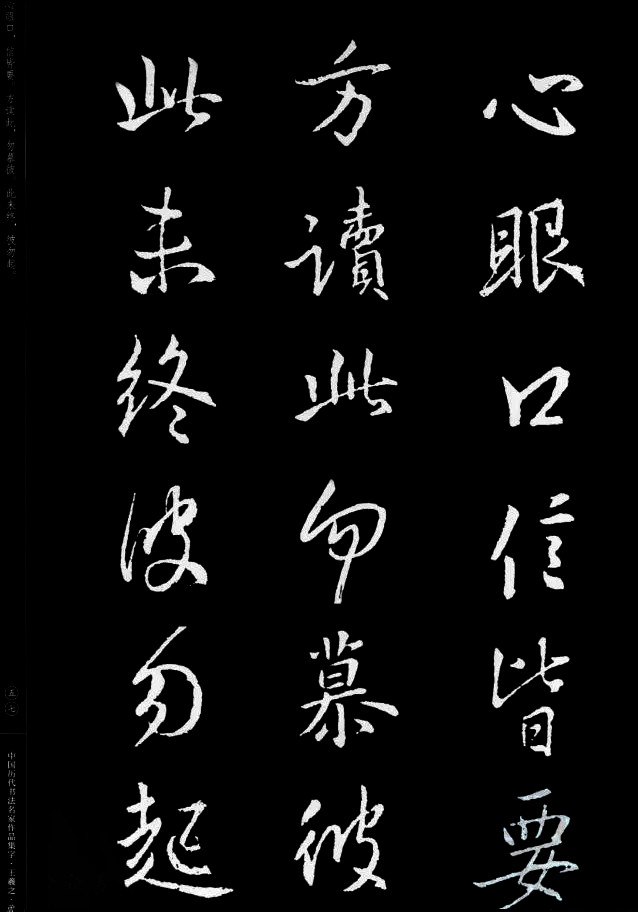 心眼口信皆要
方讀此勿慕彼
此未終彼勿起
心眼口，信皆要。方读此，勿慕彼。此未终，彼勿起。
五七
中国历代书法名家作品集字·王羲之·